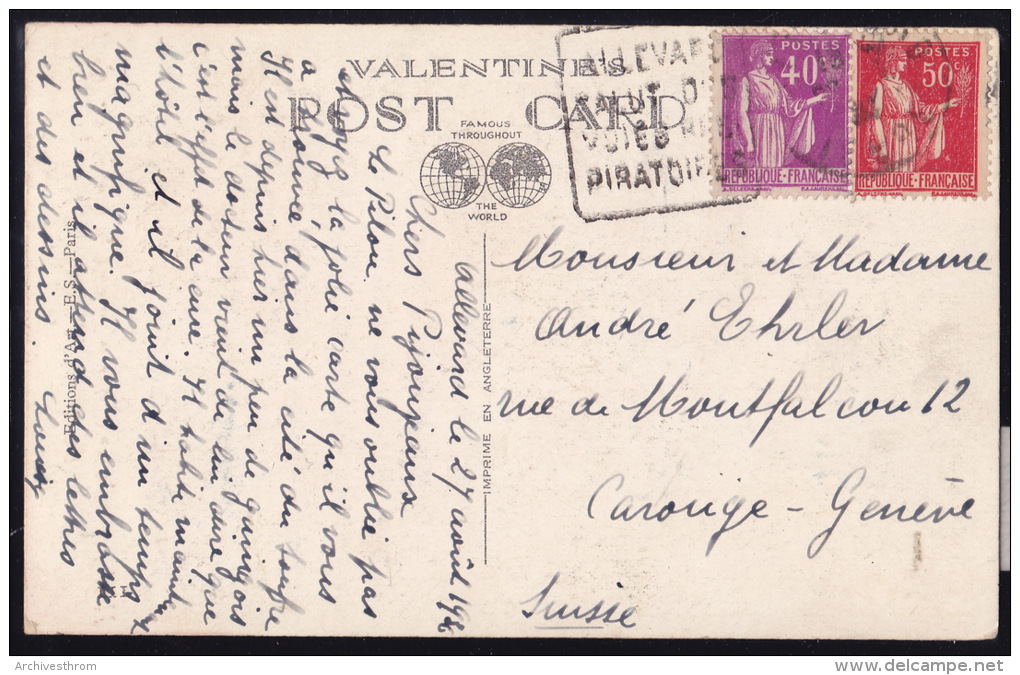 VALENTINE'S
POST CARD
FAMOUS
THROUGHOUT
THE
WORLD
ALLEVAR
SALUT D
VOIES
PIRATOIRES
POSTES
40c
RÉPUBLIQUE-FRANÇAISE
POSTES
50c
RÉPUBLIQUE-FRANÇAISE
Allevard le 27 août 19
Chers Pijoupeans
Le Pilou ne vous oublie pas
et voyez la jolie carte qu'il vous
a dans la cité du soufre
Il est depuis hier un peu de guingois
mais le docteur vient de lui dire que
c'est l'effet de la cure. Il habite maint.
l'hôtel et il jouit d'un temps
magnifique. Il vous embrasse
bien et il attend des lettres
et des dessins.
Monsieur et Madame
André Ehrler
rue de Montfalcon 12
Carouge - Genève
Suisse
IMPRIMÉ EN ANGLETERRE
Editions d'Art _ E.S._ Paris
Archivesthrom
http://archivesthrom.delcampe.net